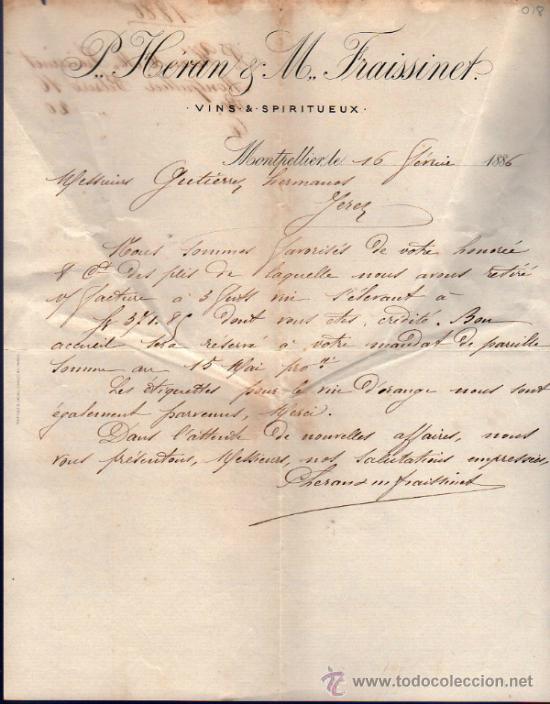 018
P. Heran & M. Fraissinet.
· VINS · & · SPIRITUEUX ·
Montpellier, le 16 février 1886
Messieurs Gutierrez hermanos
Jerez
Nous sommes favorisés de votre honorée
8 ct des plis de laquelle nous avons retiré
v/ facture à 3 futs vin s'élevant à
fr 371.85 dont vous êtes crédité. Bon
accueil sera réservé à votre mandat de pareille
somme au 15 Mai pro
Les étiquettes pour le vin d'orange nous sont
également parvenues, Merci.
Dans l'attente de nouvelles affaires, nous
vous présentons, Messieurs, nos salutations empressées,
P Heran & M fraissinet
todocoleccion
www.todocoleccion.net